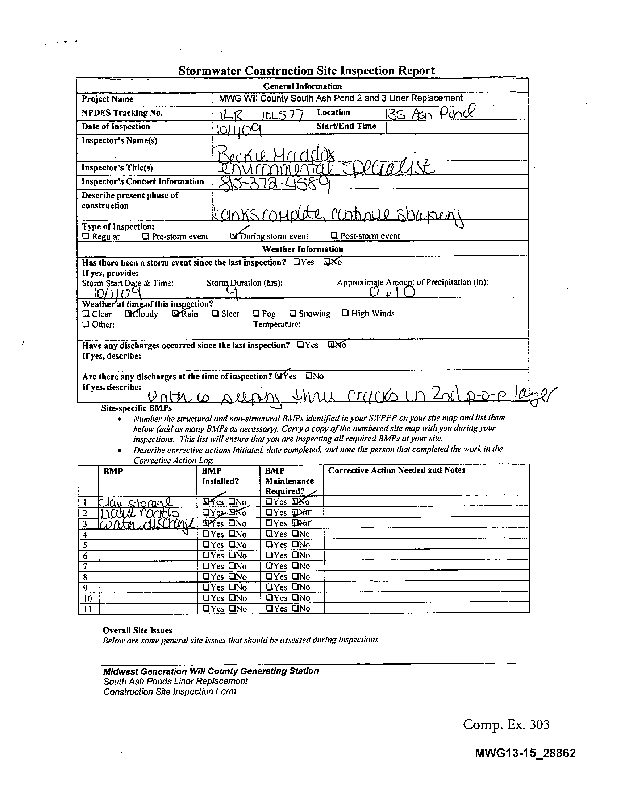 Stormwater Construction Site Inspection Report
General Information
Project Name MWG Will County South Ash Pond 2 and 3 Liner Replacement
NPDES Tracking No. ILR 10L577 Location 3S Ash Pond
Date of Inspection 10/1/09 Start/End Time
Inspector's Name(s) Beckie Maddox
Inspector's Title(s) Environmental Specialist
Inspector's Contact Information 815-372-4589
Describe present phase of
construction banks complete, continue shaping
Type of Inspection:
Regular Pre-storm event During storm event Post-storm event
Weather Information
Has there been a storm event since the last inspection? Yes No
If yes, provide:
Storm Start Date & Time: Storm Duration (hrs): Approximate Amount of Precipitation (in):
10/1/09 4 0.10
Weather at time of this inspection?
Clear Cloudy Rain Sleet Fog Snowing High Winds
Other: Temperature:
Have any discharges occurred since the last inspection? Yes No
If yes, describe:
Are there any discharges at the time of inspection? Yes No
If yes, describe: water is seeping thru cracks in 2nd layer
Site-specific BMPs
• Number the structural and non-structural BMPs identified in your SWPPP on your site map and list them
below (add as many BMPs as necessary). Carry a copy of the numbered site map with you during your
inspections. This list will ensure that you are inspecting all required BMPs at your site.
• Describe corrective actions initiated, date completed, and note the person that completed the work in the
Corrective Action Log.
BMP BMP Installed? BMP Maintenance Required? Corrective Action Needed and Notes
1 Yes No Yes No
2 Yes No Yes No
3 water discharge Yes No Yes No
4 Yes No Yes No
5 Yes No Yes No
6 Yes No Yes No
7 Yes No Yes No
8 Yes No Yes No
9 Yes No Yes No
10 Yes No Yes No
11 Yes No Yes No
Overall Site Issues
Below are some general site issues that should be assessed during inspections
Midwest Generation Will County Generating Station
South Ash Ponds Liner Replacement
Construction Site Inspection Form
Comp. Ex. 303
MWG13-15_28862